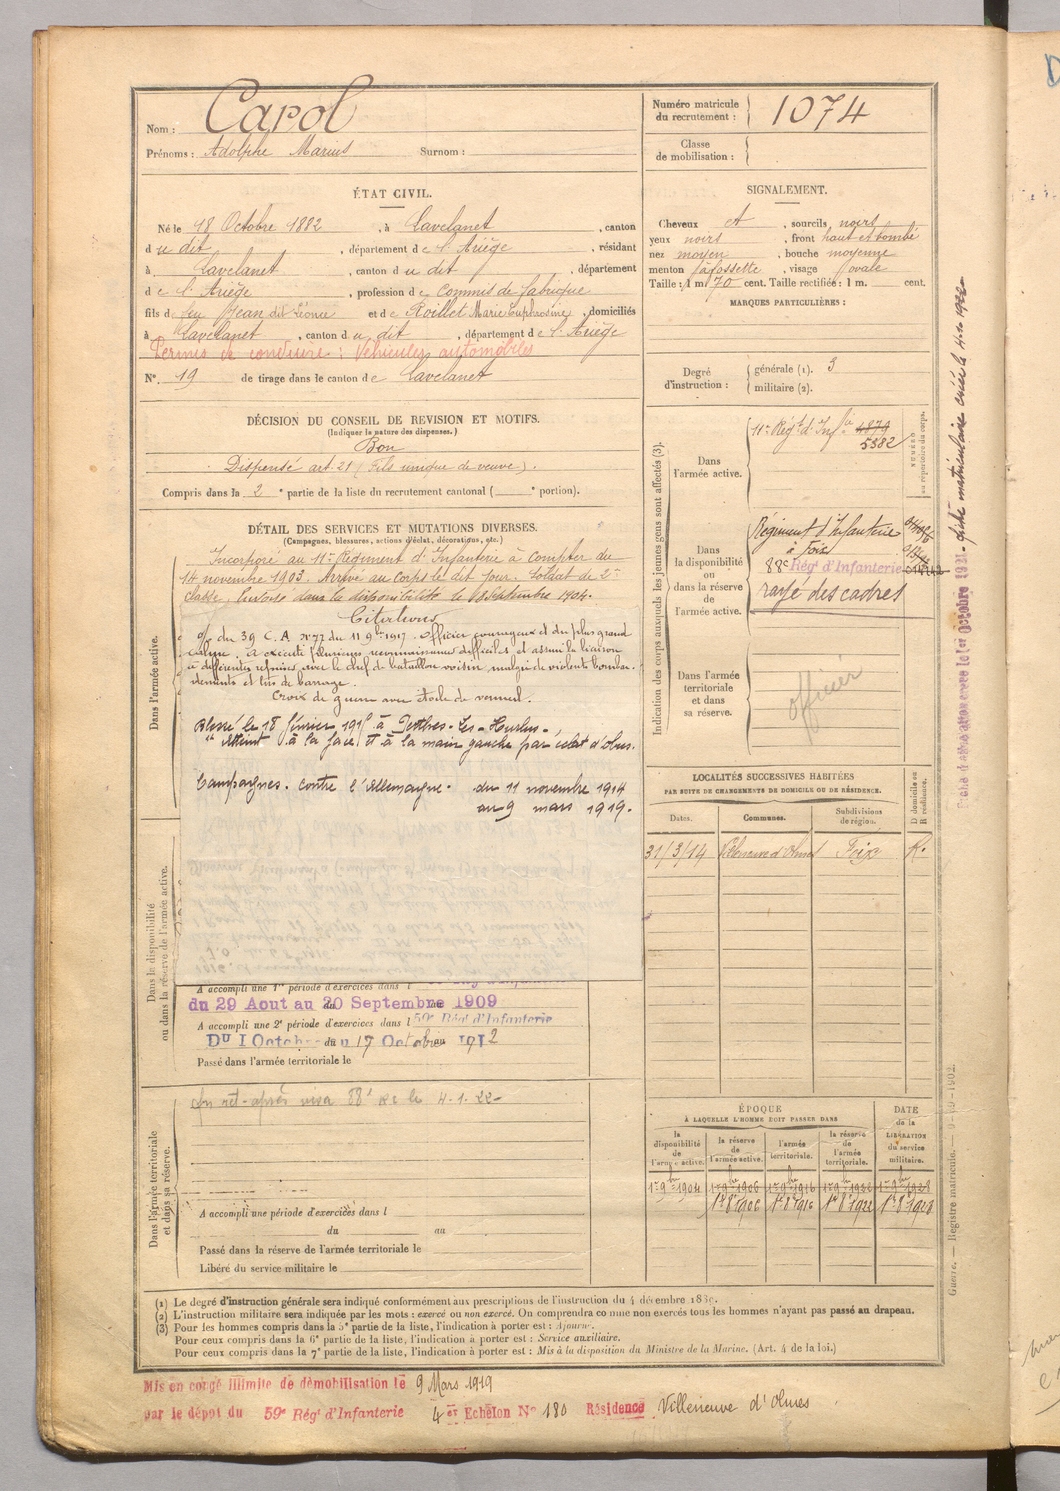 Nom : Carol
Prénoms : Adolphe Marius Surnom :
Numéro matricule
du recrutement : 1074
Classe
de mobilisation :
ÉTAT CIVIL.
Né le 18 Octobre 1882, à Lavelanet, canton
du dit, département de l'Ariège, résidant
à Lavelanet, canton du dit, département
de l'Ariège, profession de Commis de fabrique
fils de feu Jean dit Léonce et de Roillet Marie Euphrosine, domiciliés
à Lavelanet, canton du dit, département de l'Ariège
Permis de conduire : Véhicules automobiles
N° 19 de tirage dans le canton de Lavelanet
SIGNALEMENT.
Cheveux et, sourcils noirs
yeux noirs, front haut et bombé
nez moyen, bouche moyenne
menton à fossette, visage ovale
Taille : 1 m 70 cent. Taille rectifiée : 1 m. cent.
MARQUES PARTICULIÈRES :
Degré
d'instruction :
générale (1). 3
militaire (2).
DÉCISION DU CONSEIL DE REVISION ET MOTIFS.
(Indiquer la nature des dispenses.)
Bon
Dispensé art. 21 (Fils unique de veuve).
Compris dans la 2e partie de la liste du recrutement cantonal ( e portion).
DÉTAIL DES SERVICES ET MUTATIONS DIVERSES.
(Campagnes, blessures, actions d'éclat, décorations, etc.)
Dans l'armée active.
Incorporé au 11e Régiment d'Infanterie à compter du
14 novembre 1903. Arrivé au corps le dit jour. Soldat de 2e
classe. Envoyé dans la disponibilité le 18 septembre 1904.
Citations
du 39 C. A n° 77 du 11 9bre 1917. Officier courageux et du plus grand
calme. A exécuté plusieurs reconnaissances difficiles et assuré la liaison
à différentes reprises avec le chef de bataillon voisin malgré de violents bombar-
dements et tirs de barrage.
Croix de guerre avec étoile de vermeil.
Blessé le 18 février 1915 à Perthes-les-Hurlus
Atteint à la face et à la main gauche par éclat d'obus.
Campagnes. contre l'Allemagne. du 11 novembre 1914
au 9 mars 1919.
Dans la disponibilité
ou dans la réserve de l'armée active.
A accompli une 1re période d'exercices dans l
du 29 Aout au 20 Septembre 1909
A accompli une 2e période d'exercices dans l 59e Régt d'Infanterie
Du 1 Octobre au 17 Octobre 1912
Passé dans l'armée territoriale le
Dans l'armée territoriale
et dans sa réserve.
ret. après visa 88e RI le 4.1.22
A accompli une période d'exercices dans l
du au
Passé dans la réserve de l'armée territoriale le
Libéré du service militaire le
Indication des corps auxquels les jeunes gens sont affectés (3).
NUMÉRO
au répertoire du corps.
Dans
l'armée active.
11e Régt d'Infie 4879
5382
Dans
la disponibilité
ou
dans la réserve
de
l'armée active.
Régiment d'Infanterie
à Foix
88e Régt d'Infanterie
rayé des cadres
Dans l'armée
territoriale
et dans
sa réserve.
officier
LOCALITÉS SUCCESSIVES HABITÉES
PAR SUITE DE CHANGEMENTS DE DOMICILE OU DE RÉSIDENCE.
Dates. Communes. Subdivisions
de région. D domicile ou
R résidence.
31/3/14 Villeneuve d'Olmes Foix R.
ÉPOQUE
À LAQUELLE L'HOMME DOIT PASSER DANS
DATE
de la
LIBÉRATION
du service
militaire.
la
disponibilité
de
l'armée active.
la réserve
de
l'armée active.
l'armée
territoriale.
la réserve
de
l'armée
territoriale.
1er 9bre 1904 1er 9bre 1906 1er 9bre 1916 1er 9bre 1922 1er 9bre 1928
1er 8bre 1906 1er 8bre 1916 1er 8bre 1922 1er 8bre 1928
Fiche d'affectation créée le 1er Octobre 1921 - fiche matriculaire créée le 4.10.1922
Guerre. — Registre matricule. — 1902.
(1) Le degré d'instruction générale sera indiqué conformément aux prescriptions de l'instruction du 4 décembre 1889.
(2) L'instruction militaire sera indiquée par les mots : exercé ou non exercé. On comprendra comme non exercés tous les hommes n'ayant pas passé au drapeau.
(3) Pour les hommes compris dans la 5e partie de la liste, l'indication à porter est : Ajourné.
Pour ceux compris dans la 6e partie de la liste, l'indication à porter est : Service auxiliaire.
Pour ceux compris dans la 7e partie de la liste, l'indication à porter est : Mis à la disposition du Ministre de la Marine. (Art. 4 de la loi.)
Mis en congé illimité de démobilisation le 9 Mars 1919
par le dépôt du 59e Régt d'Infanterie 4e Echelon N° 180 Résidence Villeneuve d'Olmes